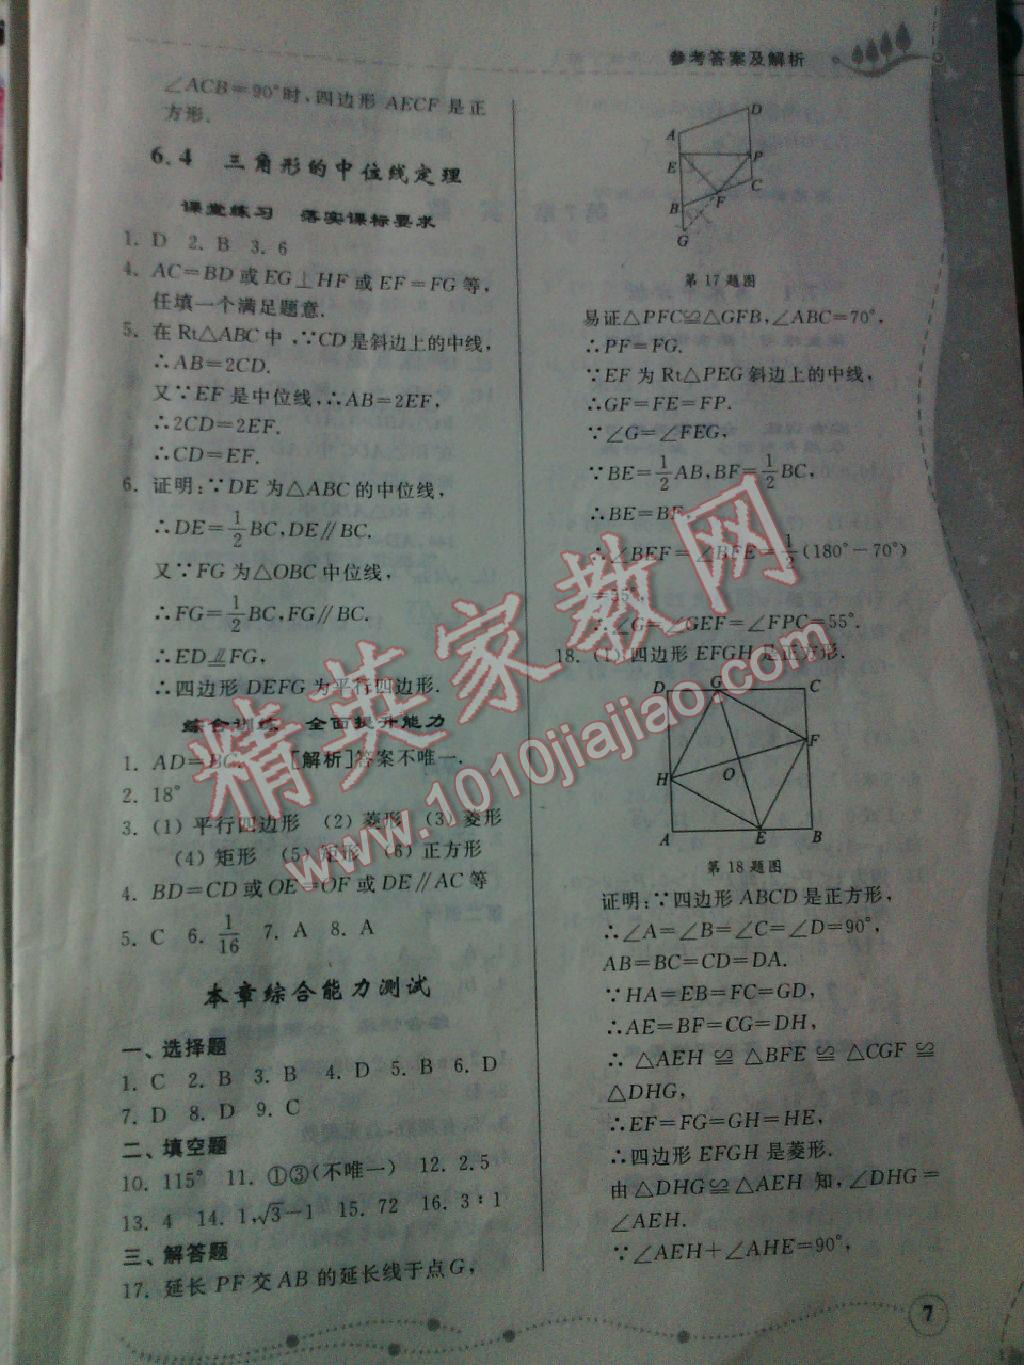 参考答案及解析
∠ACB=90°时,四边形 AECF 是正
方形.
6.4 三角形的中位线定理
课堂练习 落实课标要求
1. D 2. B 3. 6
4. AC=BD或EG⊥HF或EF=FG等,
任填一个满足题意.
5. 在Rt△ABC中,∵CD是斜边上的中线,
∴AB=2CD.
又∵EF是中位线,∴AB=2EF,
∴2CD=2EF.
∴CD=EF.
6. 证明:∵DE为△ABC的中位线,
∴DE=1/2BC,DE∥BC.
又∵FG为△OBC中位线,
∴FG=1/2BC,FG∥BC.
∴ED⫫FG,
∴四边形DEFG为平行四边形.
综合训练 全面提升能力
1. AD=BC. [解析]答案不唯一.
2. 18°
3. (1)平行四边形 (2)菱形 (3)菱形
(4)矩形 (5)矩形 (6)正方形
4. BD=CD或OE=OF或DE∥AC等
5. C 6. 1/16 7. A 8. A
本章综合能力测试
一、选择题
1. C 2. B 3. B 4. D 5. B 6. D
7. D 8. D 9. C
二、填空题
10. 115° 11. ①③(不唯一) 12. 2.5
13. 4 14. 1,√3-1 15. 72 16. 3∶1
三、解答题
17. 延长PF交AB的延长线于点G,
D
A
E
P
C
B
F
G
第17题图
易证△PFC≌△GFB,∠ABC=70°,
∴PF=FG.
∵EF为Rt△PEG斜边上的中线,
∴GF=FE=FP.
∵∠G=∠FEG,
∵BE=1/2AB,BF=1/2BC,
∴BE=BF,
∴∠BEF=∠BFE=1/2(180°-70°)
=55°,
∴∠G=∠GEF=∠FPC=55°.
18. (1)四边形EFGH是正方形.
D G C
F
H
O
A E B
第18题图
证明:∵四边形ABCD是正方形,
∴∠A=∠B=∠C=∠D=90°,
AB=BC=CD=DA.
∵HA=EB=FC=GD,
∴AE=BF=CG=DH,
∴△AEH≌△BFE≌△CGF≌
△DHG,
∴EF=FG=GH=HE,
∴四边形EFGH是菱形.
由△DHG≌△AEH知,∠DHG=
∠AEH.
∵∠AEH+∠AHE=90°,
7
精英家教网
www.1010jiajiao.com